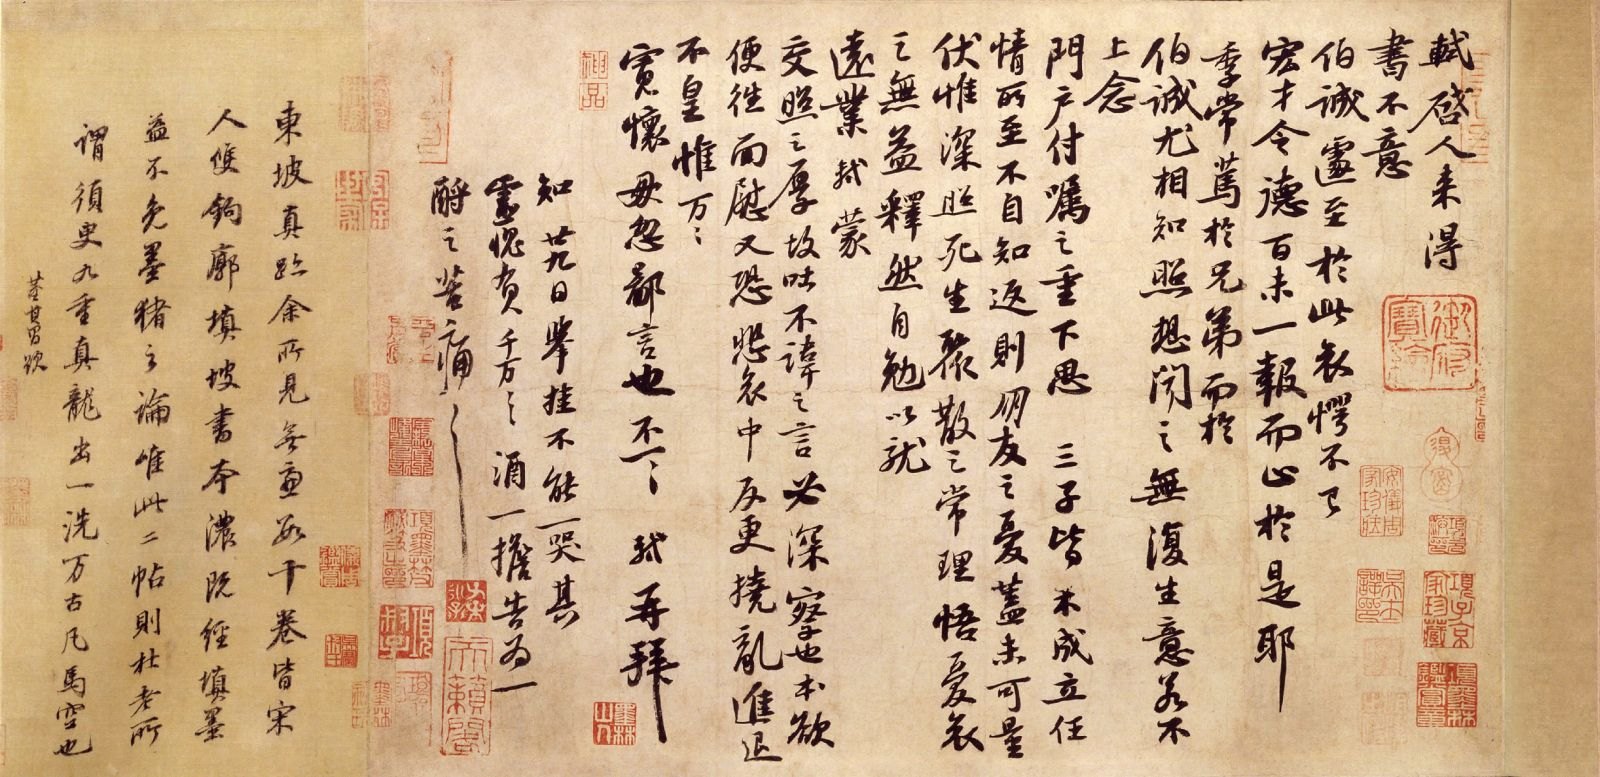 軾啓人来得
書不意
伯誠遽至於此哀愕不已
宏才令德百未一報而止於是耶
季常篤於兄弟而於
伯誠尤相知照想聞之無復生意若不
上念
門户付囑之重下思三子皆未成立任
情所至不自知返則朋友之憂蓋未可量
伏惟深照死生聚散之常理悟憂哀
之無益釋然自勉以就
遠業軾蒙
交照之厚故吐不諱之言必深察也本欲
便往面慰又恐悲哀中反更撓亂進退
不皇惟万〻
寬懷毋忽鄙言也不一〻軾再拜
知廿九日舉挂不能一哭其
靈愧負千万〻酒一擔告为一
酹之苦痛〻
東坡真跡余所見無慮數十卷皆宋
人雙鉤廓填坡書本濃既經填墨
益不免墨猪之論唯此二帖則杜老所
謂須臾九重真龍出一洗万古凡馬空也
董其昌跋
神品
御府寶繪
項子京家珍藏
項墨林鑑賞章
安儀周家珍藏
墨林山人
天籟閣
項墨林父祕笈之印